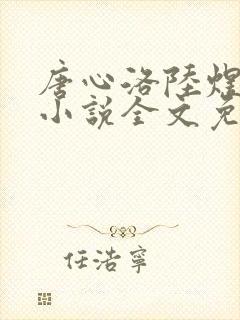 唐心洛陸煜
小說全文免
任浩寧